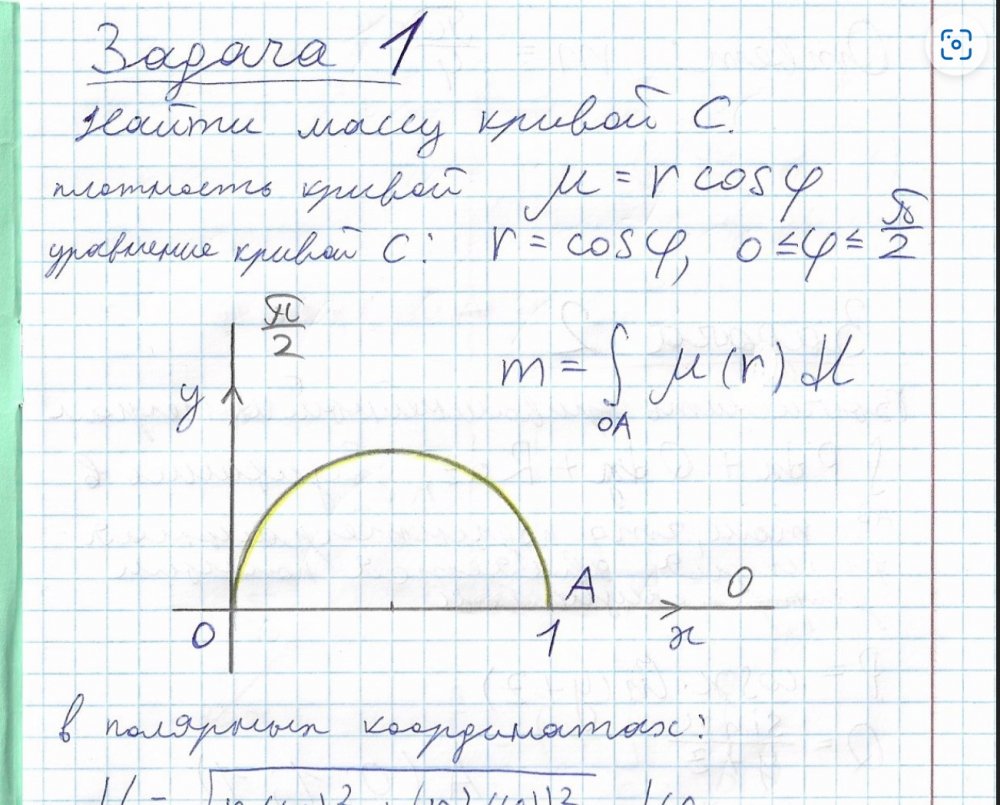 Задача 1
Найти массу кривой C.
плотность кривой μ = r cos φ
уравнение кривой C: r = cos φ, 0 ≤ φ ≤ π/2
π/2
m = ∫ μ(r) dl
OA
y
A
0
0
1
x
в полярных координатах: